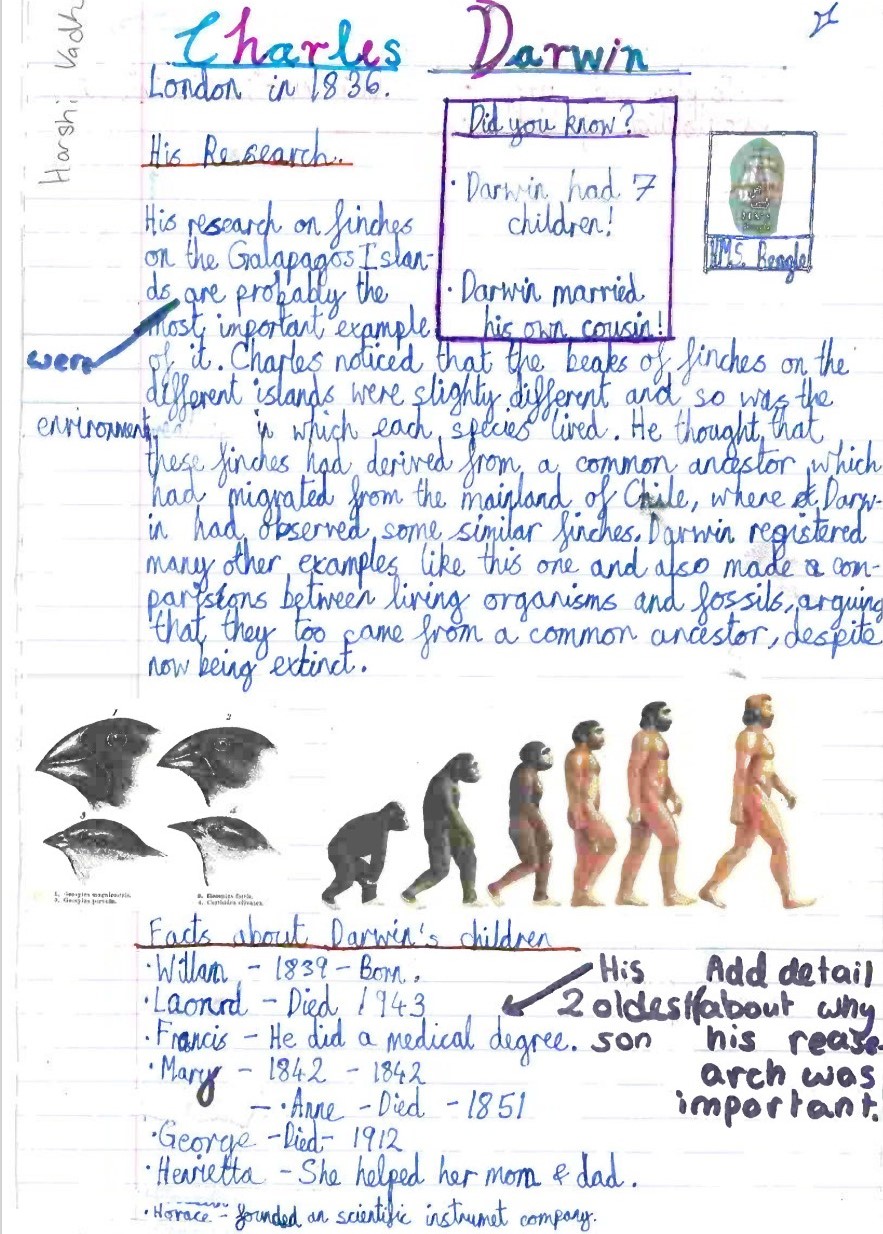 Harshi Vadh
Charles Darwin
London in 1836.
His Research.
Did you know?
· Darwin had 7
children!
· Darwin married
his own cousin!
H.M.S. Beagle
His research on finches
on the Galapagos Islan-
ds are probably the
most important example
were
of it. Charles noticed that the beaks of finches on the
different islands were slighty different and so was the
environment
in which each species lived. He thought that
these finches had derived from a common ancestor which
had migrated from the mainland of Chile, where Darw-
in had observed some similar finches. Darwin registered
many other examples like this one and also made a com-
parisions between living organisms and fossils, arguing
that they too came from a common ancestor, despite
now being extinct.
1
2
3
4
1. Geospiza magnirostris.
2. Geospiza fortis.
3. Geospiza parvula.
4. Certhidea olivacea.
Facts about Darwin's children
·Willam - 1839 - Born.
·Laonrd - Died 1943
·Francis - He did a medical degree.
·Mary - 1842 - 1842
- ·Anne - Died - 1851
·George -Died- 1912
·Henrietta - She helped her mom & dad.
·Horace - founded an scientific instrumet company.
His
2 oldest
son
Add detail
about why
his rease-
arch was
important.